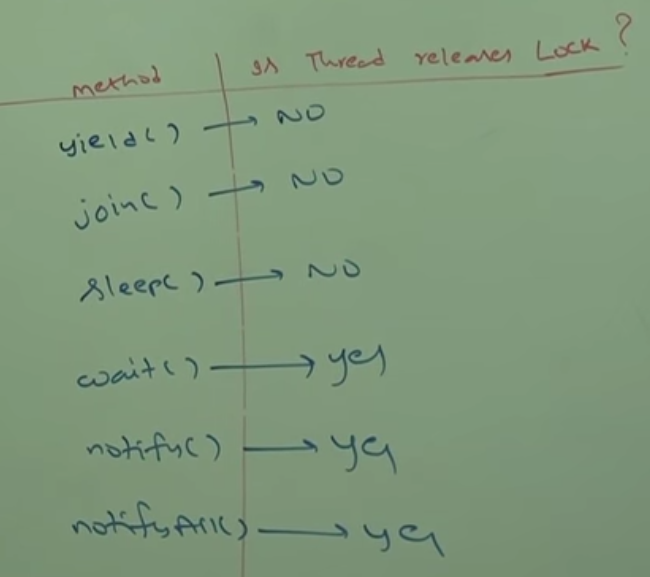 method Is Thread releases Lock ?
yield() → NO
join() → NO
sleep() → NO
wait() → yes
notify() → yes
notifyAll() → yes